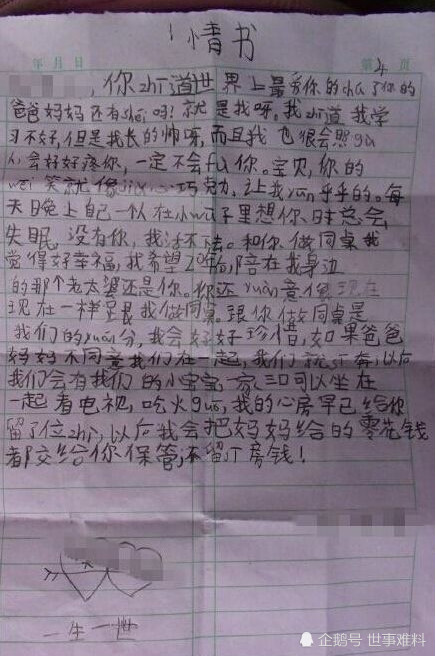 情书
年 月 日 第4页
，你zhī道世界上最爱你的chú了你的
爸爸妈妈还有shéi吗？就是我呀。我zhī道我学
习不好，但是我长的帅呀，而且我也很会照gù
人，会好好疼你，一定不会fù你。宝贝，你的
wēi笑就像 巧克力，让我 乎乎的。每
天晚上自己一人在小wū子里想你时总会
失眠，没有你，我活不 。和你做同桌我
觉得好幸福，我希望20年后，陪在我身边
的那个老太婆还是你。你还yuàn意像现在
现在一样 跟我做同桌。跟你做同桌是
我们的yuán分，我会好好珍惜，如果爸爸
妈妈不同意我们在一起，我们就 奔，以后
我们会有我们的小宝宝，一家三口可以坐在
一起看电视，吃火guō，我的心房早已给你
留了位zhì，以后我会把妈妈给的零花钱
都交给你保管，不留 房钱！
一生一世
企鹅号 世事难料